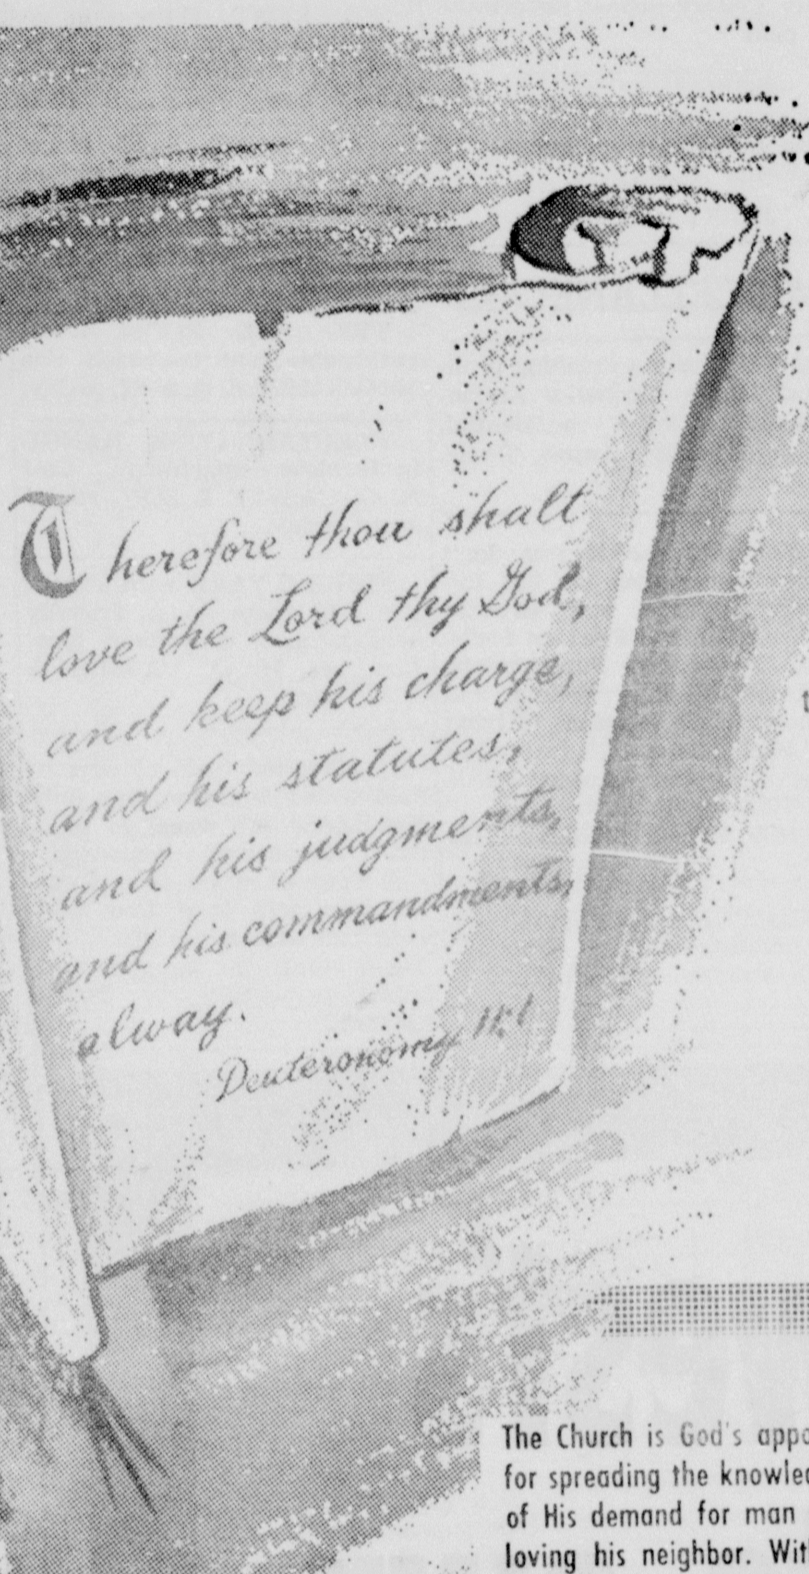 Therefore thou shalt
love the Lord thy God,
and keep his charge,
and his statutes,
and his judgments,
and his commandments,
alway.
Deuteronomy 11:1
The Church is God's appo
for spreading the knowled
of His demand for man
loving his neighbor. Wit